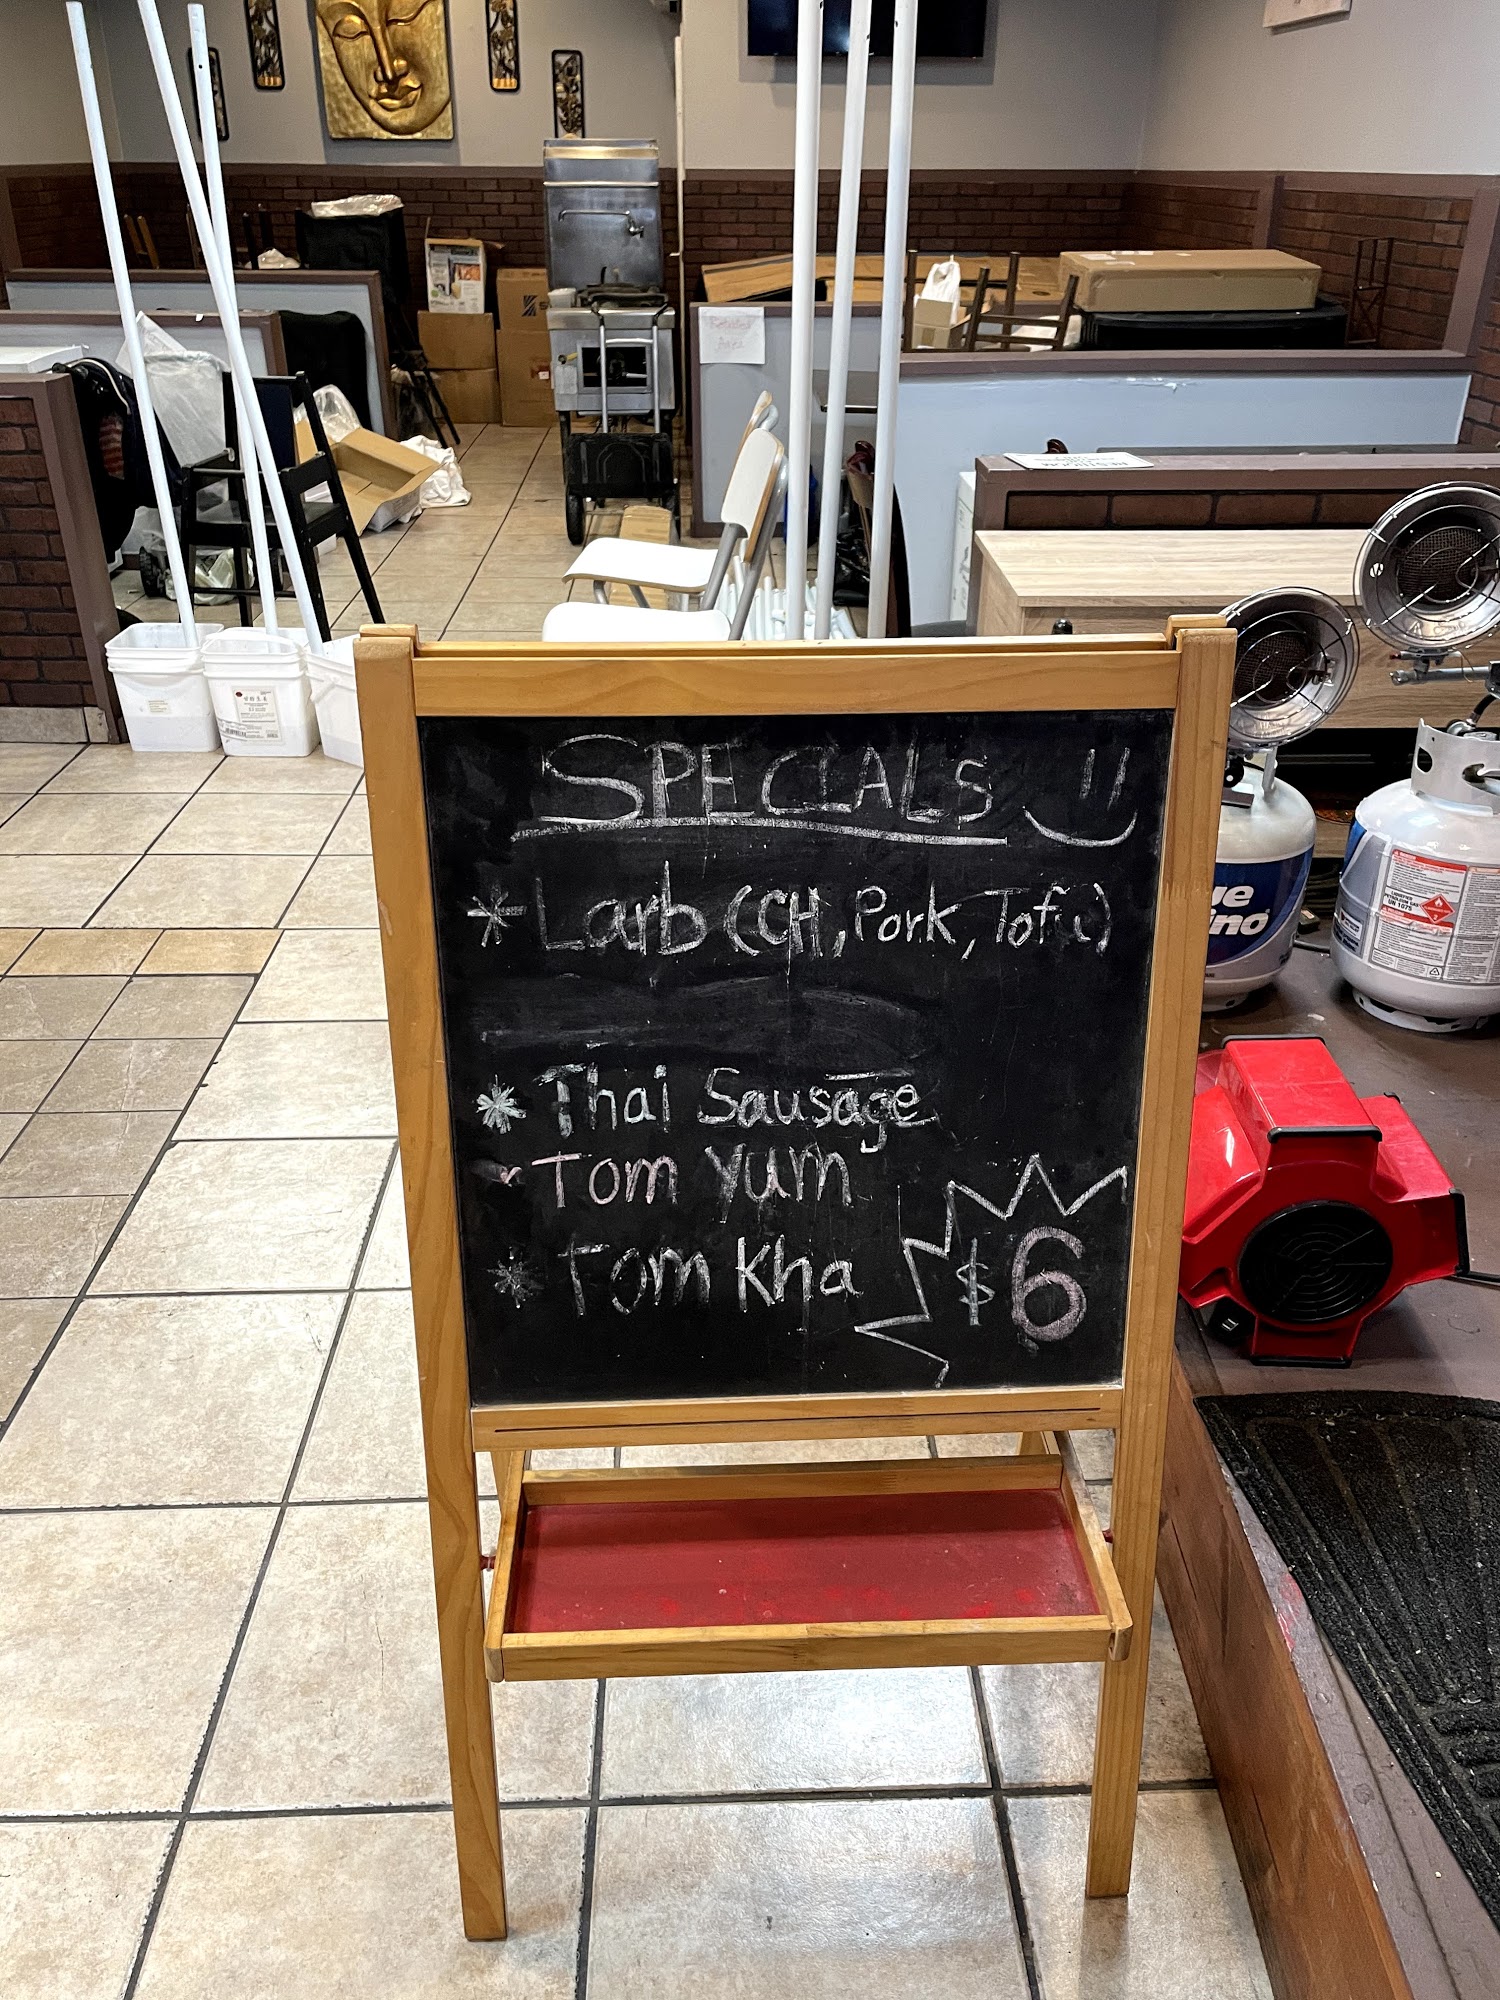 SPECIALS
* Larb (CH, Pork, Tofu)
* Thai Sausage
Tom Yum
* Tom Kha
$6
UN 1075